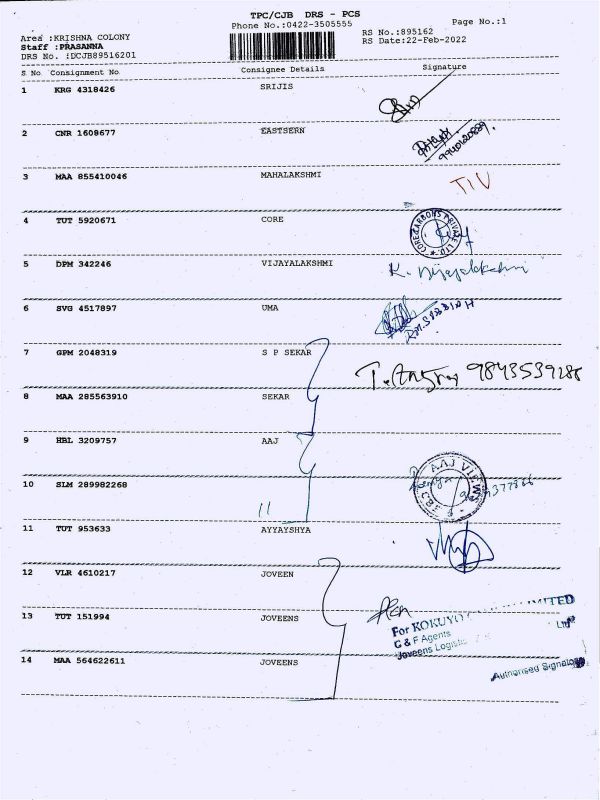 TPC/CJB DRS - PCS
Phone No.:0422-3505555
Page No.:1
Area :KRISHNA COLONY
Staff :PRASANNA
DRS No. :DCJB89516201
RS No.:895162
RS Date:22-Feb-2022
S No Consignment No Consignee Details Signature
1 KRG 4318426 SRIJIS
2 CNR 1608677 EASTSERN
3 MAA 855410046 MAHALAKSHMI
TIV
4 TUT 5920671 CORE
CORE CARBONS PRIVATE LTD.
5 DPM 342246 VIJAYALAKSHMI
K. Vijayalakshmi
6 SVG 4517897 UMA
7 GPM 2048319 S P SEKAR
9843539286
8 MAA 285563910 SEKAR
9 HBL 3209757 AAJ
AAJ VIEWS
10 SLM 289982268 11
11 TUT 953633 AYYAYSHYA
12 VLR 4610217 JOVEEN
13 TUT 151994 JOVEENS
For KOKUYO LIMITED
C & F Agents
Joveens Logistic
14 MAA 564622611 JOVEENS
Authorised Signatory